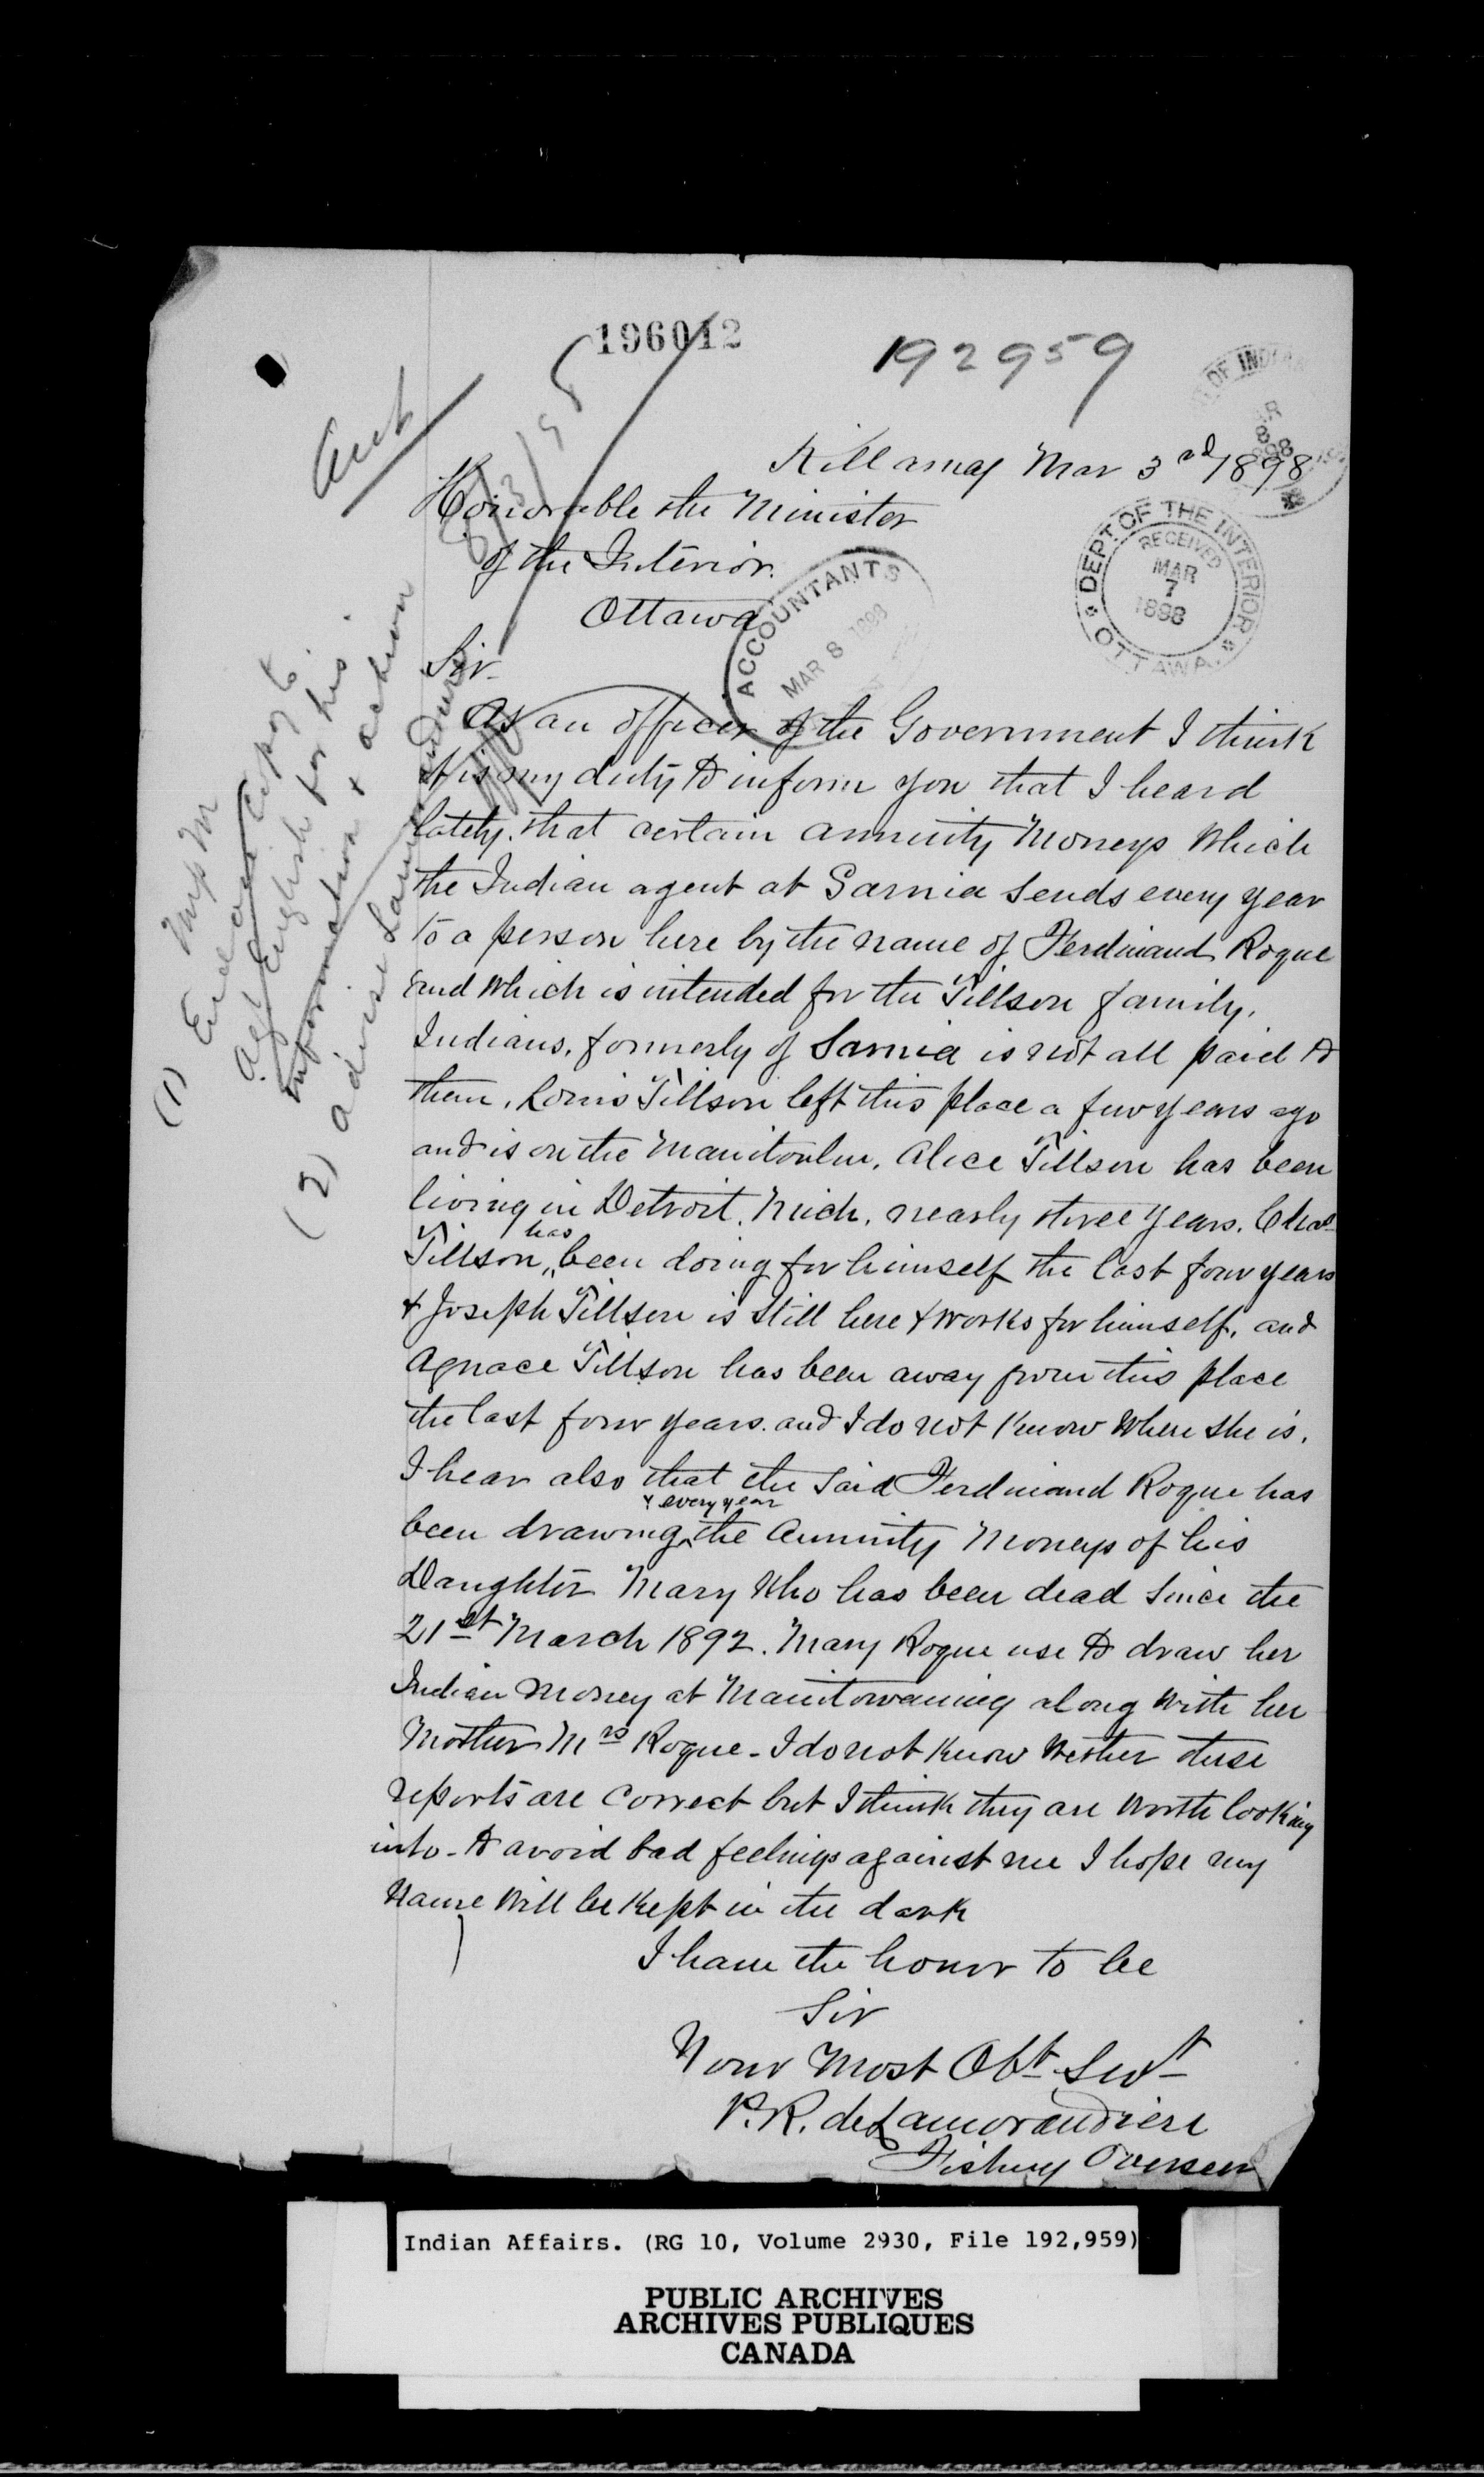 196012
192959
Killarney Mar 3rd 1898
Honorable the Minister
of the Interior.
Ottawa
DEPT. OF THE INTERIOR
RECEIVED
MAR
7
1898
OTTAWA
ACCOUNTANTS
MAR 8 1898
OF INDIAN
Sir
As an officer of the Government I think
it is my duty to inform you that I heard
lately, that certain annuity Moneys Which
the Indian agent at Sarnia sends every year
to a person here by the name of Ferdinand Roque
and Which is intended for the Tillson family,
Indians, formerly of Sarnia is not all paid to
them, Louis Tillson left this place a few years ago
and is on the Manitoulin, Alice Tillson has been
living in Detroit, Mich, nearly three years. Chas
Tillson, has been doing for himself the last four years
& Joseph Tillson is still here & works for himself, and
Agnace Tillson has been away from this place
the last four years. and I do not Know Where she is.
I hear also that the said Ferdinand Roque has
been drawing & every year the Annuity Moneys of his
Daughter Mary Who has been dead since the
21st March 1892. Mary Roque use to draw her
Indian Money at Manitowaning along With her
Mother Mrs Roque - I do not Know Wether these
reports are Correct but I think they are Worth looking
into - to avoid bad feelings against me I hope my
Name Will be Kept in the dark
I have the honor to be
Sir
Your Most Obt Svt
P.R. de Lamorandiere
Fishery Overseer
(1) Enclose copy to
Agt English for his
information & action
(2) advise Lamorandiere
Indian Affairs. (RG 10, Volume 2930, File 192,959)
PUBLIC ARCHIVES
ARCHIVES PUBLIQUES
CANADA